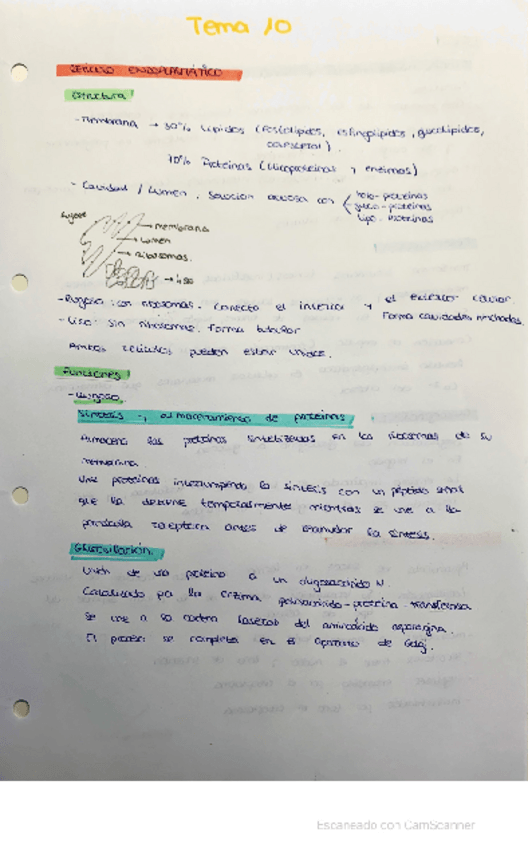 Tema 10
RETÍCULO ENDOPLASMÁTICO
Estructura
- Membrana → 30% Lípidos (Fosfolípidos, esfingolípidos, glucolípidos,
colesterol).
70% Proteínas (Glucoproteínas y enzimas)
- Cavidad / Lumen. Solución acuosa con
holo-proteínas
gluco-proteínas
lipo-proteínas
Rugoso
→ membrana
→ lumen
→ ribosomas.
→ liso
- Rugoso: con ribosomas. Conecta el interior y el exterior celular.
Forma cavidades hinchadas.
- Liso: sin ribosomas. Forma tubular
Ambos retículos pueden estar unidos.
Funciones
- Rugoso.
Síntesis y almacenamiento de proteínas
Almacena las proteínas sintetizadas en los ribosomas de su
membrana
Une proteínas interrumpiendo la síntesis con un péptido señal
que la detiene temporalmente mientras se une a la
receptora antes de reanudar la síntesis.
Glucosilación.
Unión de una proteína a un oligosacárido N.
Catalizado por la enzima -proteína-transferasa
Se une a la cadena lateral del aminoácido asparagina.
El proceso se completa en el aparato de Golgi.
Escaneado con CamScanner